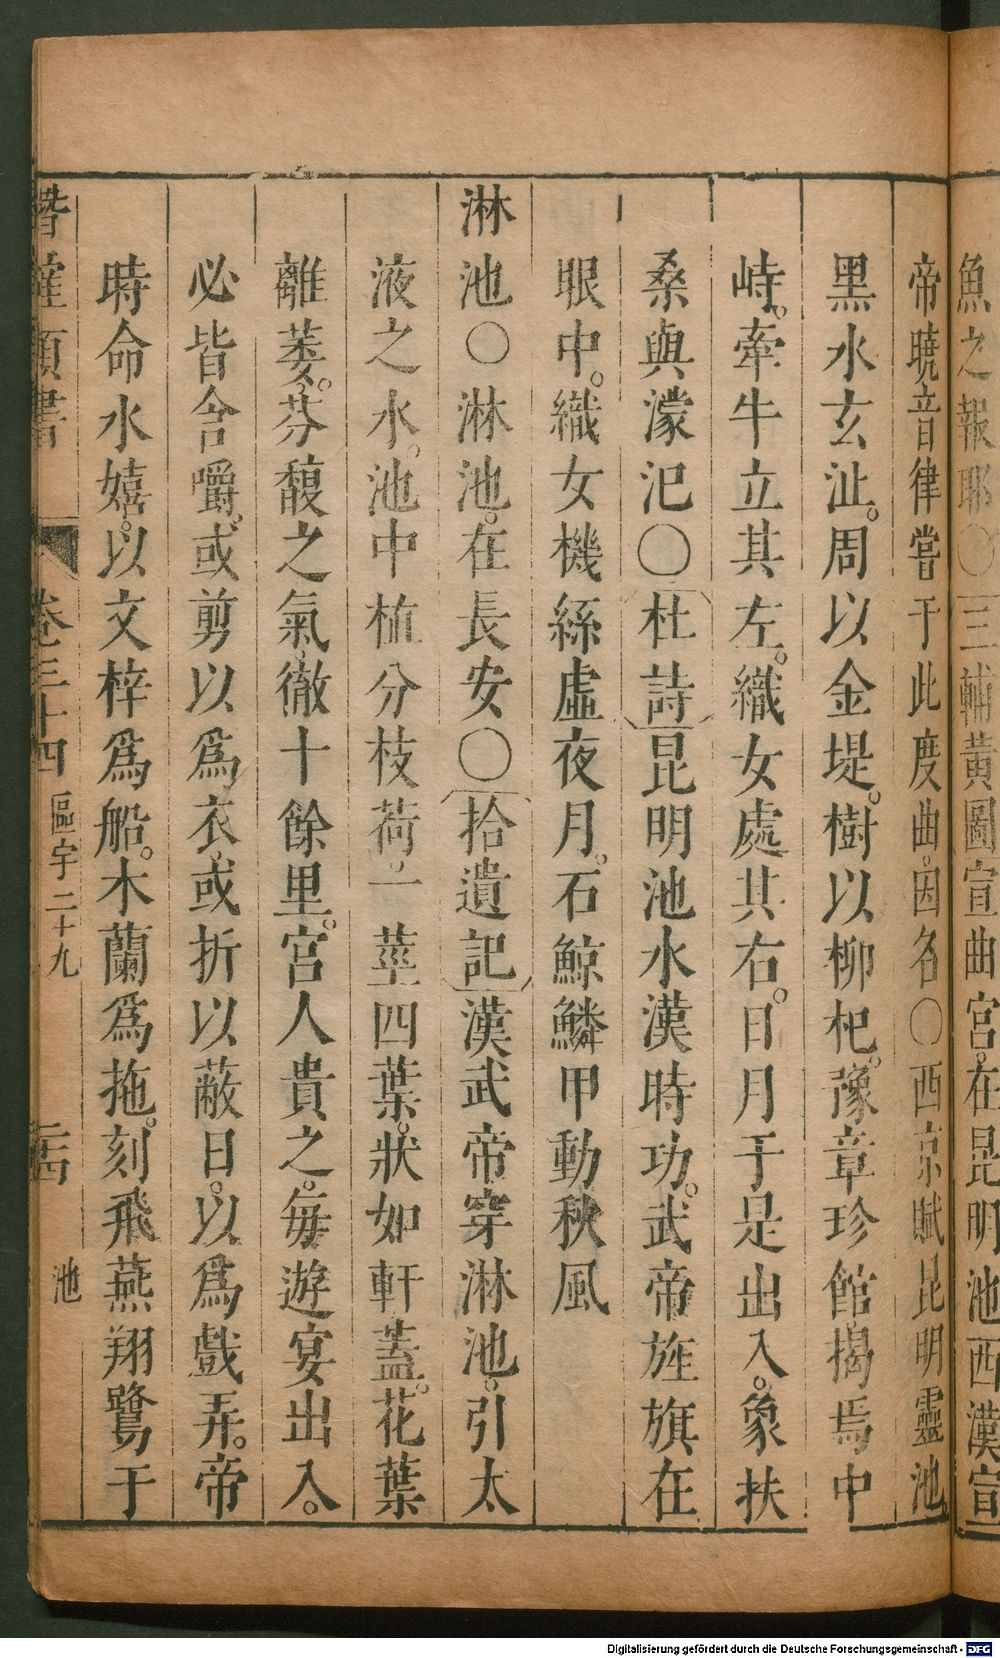 魚之報耶〇三輔黃圖宣曲宮。在昆明池西漢宣
帝曉音律嘗于此度曲。因名〇西京賦昆明靈池。
黑水玄沚。周以金堤。樹以柳杞。豫章珍館。揭焉中
峙。牽牛立其左。織女處其右。日月于是出入。象扶
桑與濛汜〇杜詩昆明池水漢時功。武帝旌旗在
眼中。織女機絲虛夜月。石鯨鱗甲動秋風
淋池〇淋池。在長安〇拾遺記漢武帝穿淋池。引太
液之水。池中植分枝荷。一莖四葉。狀如軒蓋。花葉
離萎。芬馥之氣。徹十餘里。宮人貴之。每遊宴出入。
必皆含嚼。或剪以為衣。或折以蔽日。以為戲弄。帝
時命水嬉。以文梓為船。木蘭為拖。刻飛燕翔鷺于
類書 卷三十四 區宇二十九 池
Digitalisierung gefördert durch die Deutsche Forschungsgemeinschaft - DFG